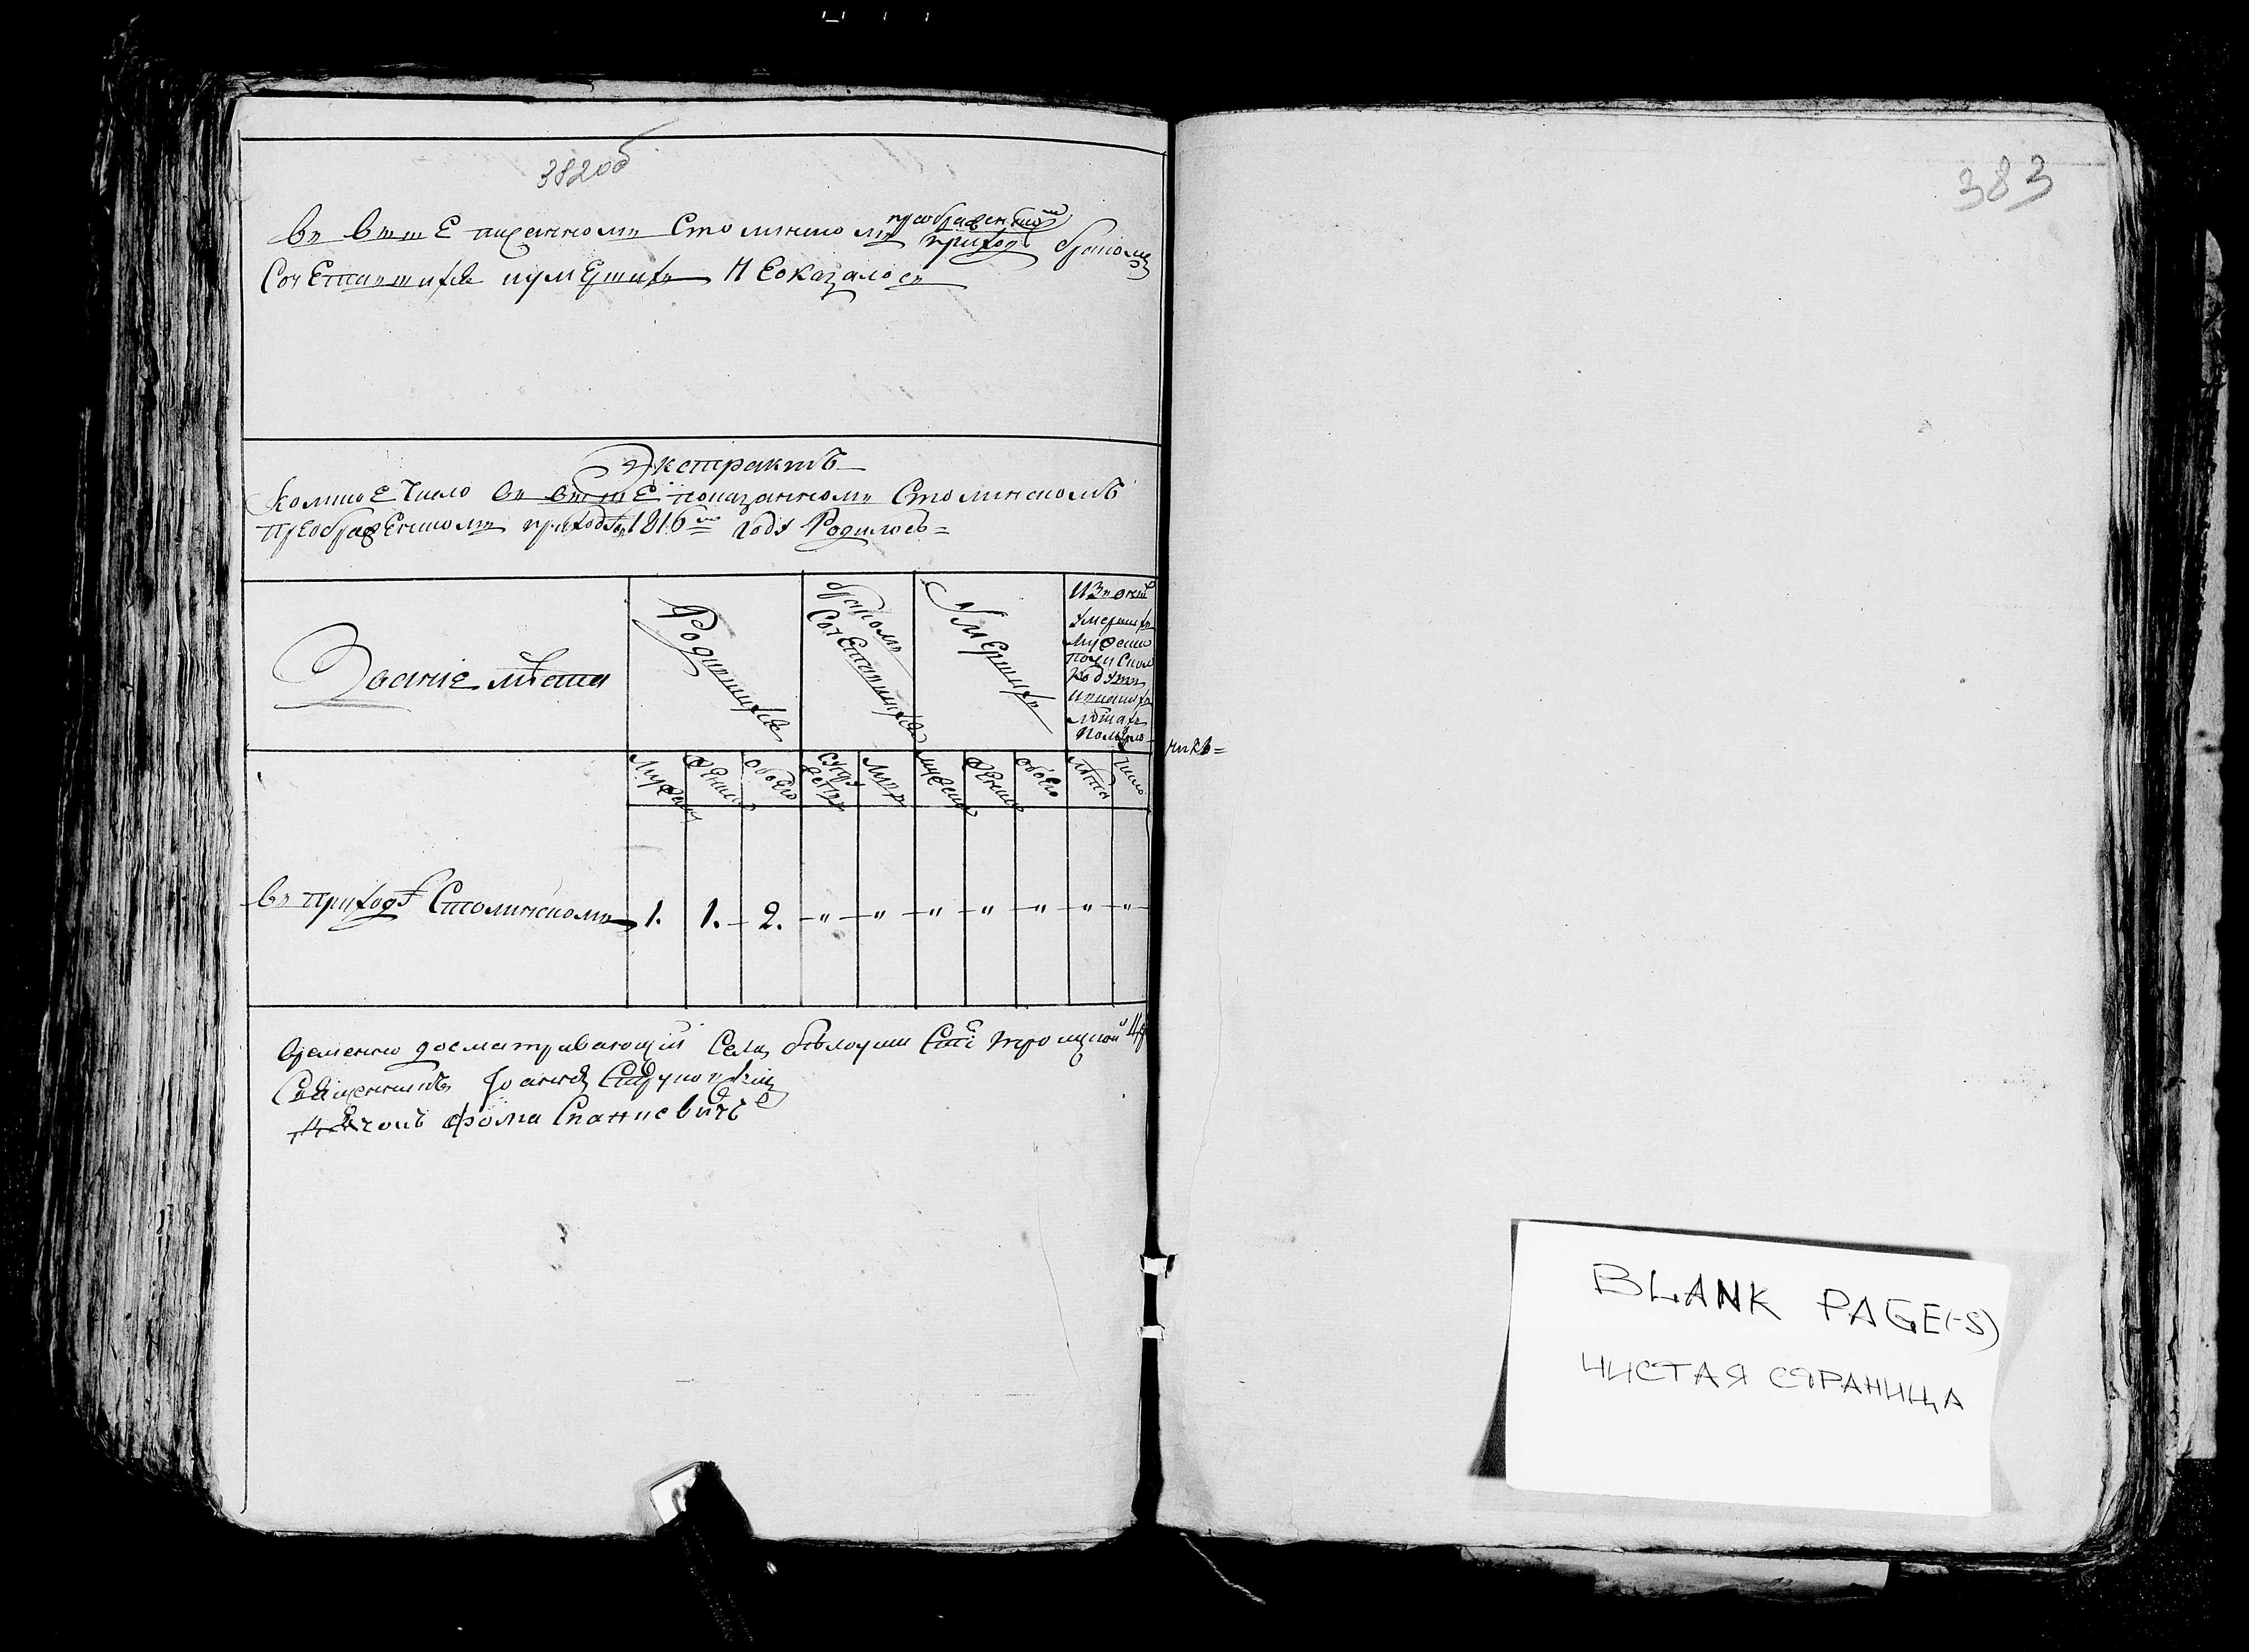 382об
въ выше писанномъ Столинскомъ преображенской приходѣ бракомъ
Сочетавшихся и умершихъ Неоказалось
Экстрактъ
Коликое Число въ выше показанномъ Столинскомъ
преображенскомъ приходѣ 1816го года Родилось=
Званіе мѣста
Родившихся
бракомъ Сочетавшихся
Умершихъ
Изъ оныхъ
умершихъ
мужеска
пола
лѣтахъ
Мужеска
Женска
обоего
мужеска
Женска
обоего
лѣта
число
въ приходѣ Столинскомъ 1. 1. 2. " " " " " " "
временно досматривающій Села бѣлоуши Стъ троицкой Ц
Священникъ Іоаннъ
Дьячокъ Фома
383
BLANK PAGE(-S)
ЧИСТАЯ СТРАНИЦА